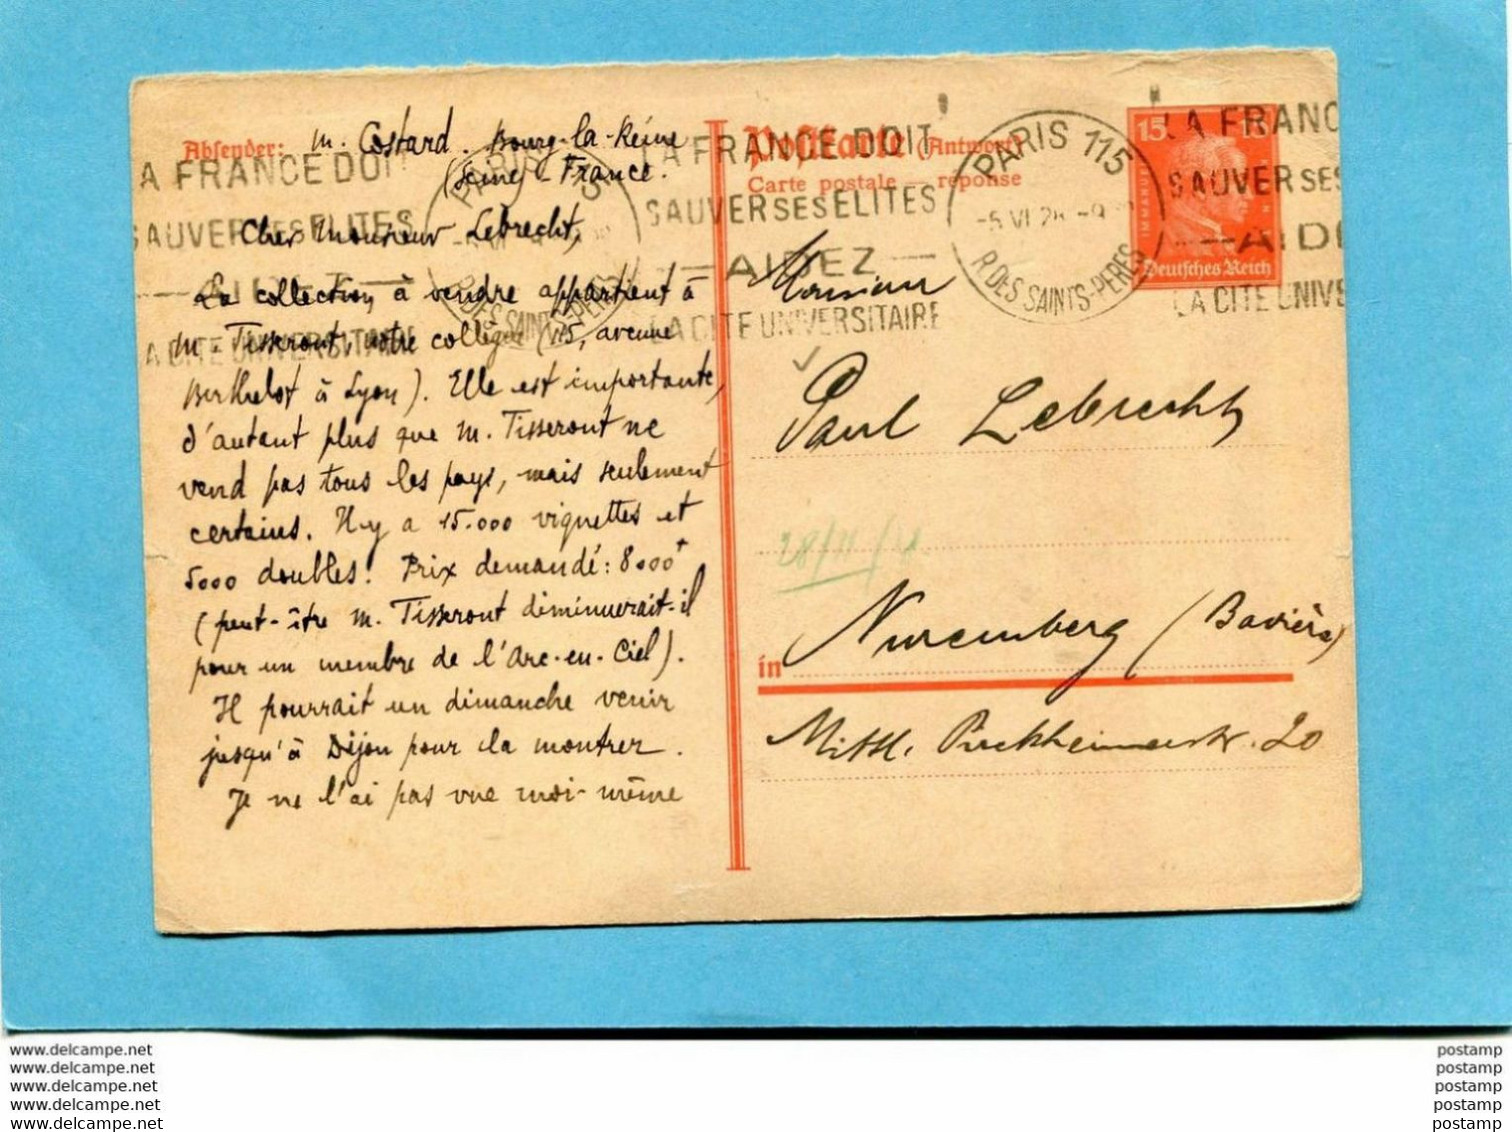 Absender: M. Costard. Bourg-la-Reine
(Seine) - France.
Cher Monsieur Lebrecht,
La collection, à vendre appartient à
M. Tisseront, notre collègue (115, avenue
Berthelot à Lyon). Elle est importante,
d'autant plus que M. Tisseront ne
vend pas tous les pays, mais seulement
certains. Il y a 15.000 vignettes et
5000 doubles. Prix demandé: 8000
(peut-être M. Tisseront diminuerait-il
pour un membre de l'Arc-en-Ciel).
Il pourrait un dimanche venir
jusqu'à Dijon pour la montrer.
Je ne l'ai pas vue moi-même
A FRANCE DOIT
SAUVER SES ELITES
A CITE UNIVERSITAIRE
LA FRANCE DOIT
SAUVER SES ELITES
—AIDEZ—
LA CITE UNIVERSITAIRE
Postkarte (Antwort)
Carte postale — réponse
PARIS 115
-5 VI 28 -9
R. DES SAINTS-PERES
15 15
Deutsches Reich
LA FRANC
SAUVER SES
—AIDE
LA CITE UNIVE
Monsieur
Paul Lebrecht
in Nuremberg (Bavière)
Mittl. Pirckheimerstr. 20
www.delcampe.net
www.delcampe.net
www.delcampe.net
www.delcampe.net
www.delcampe.net
postamp
postamp
postamp
postamp
postamp